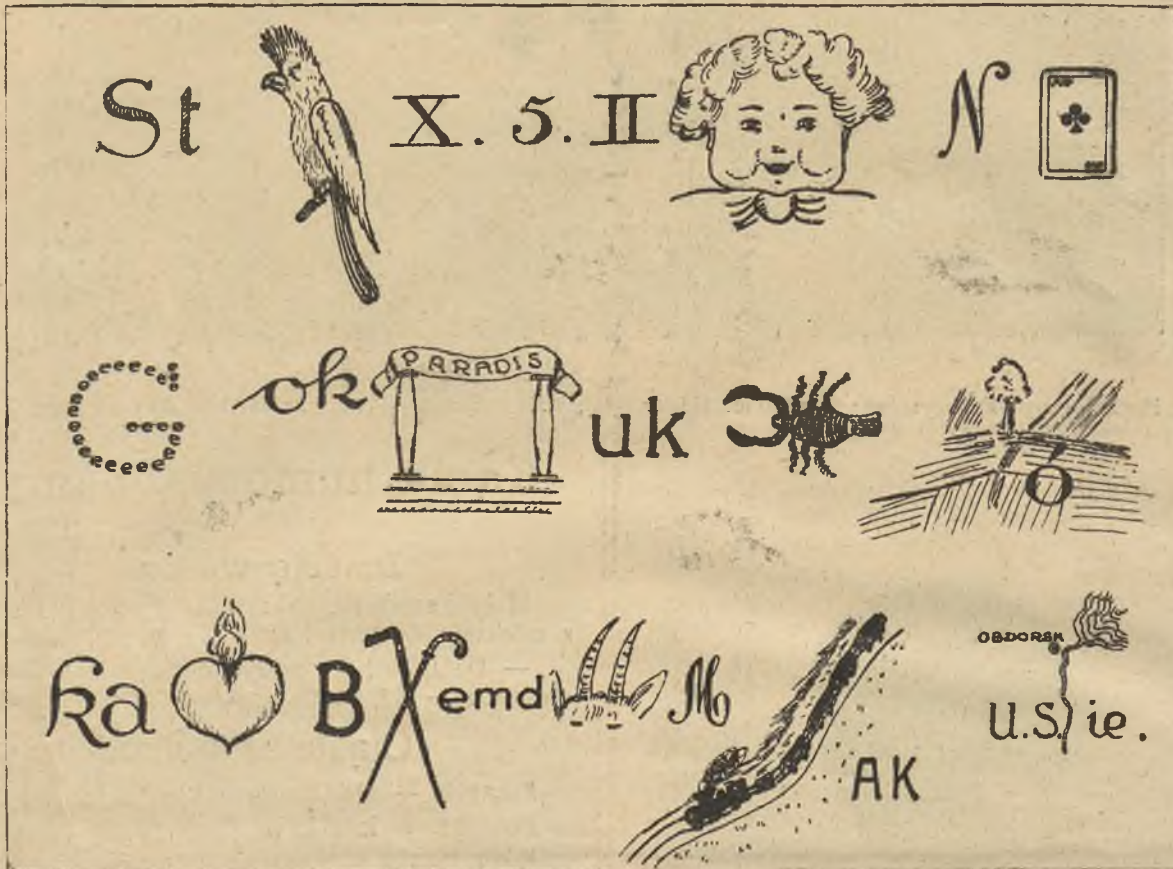 St X. 5. II N
G ok PARADIS uk ó
ka B emd M AK OBDORSK U.S. ie.